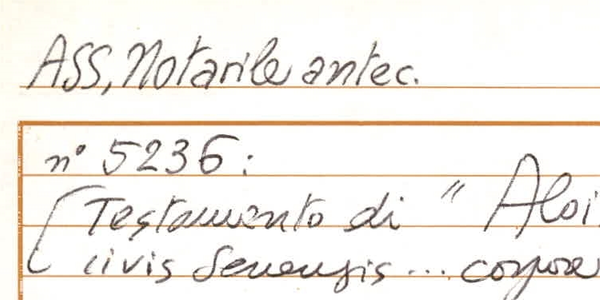 ASS, Notarile antec.
n° 5236:
[Testamento di "Aloi
civis Senensis ... corpore